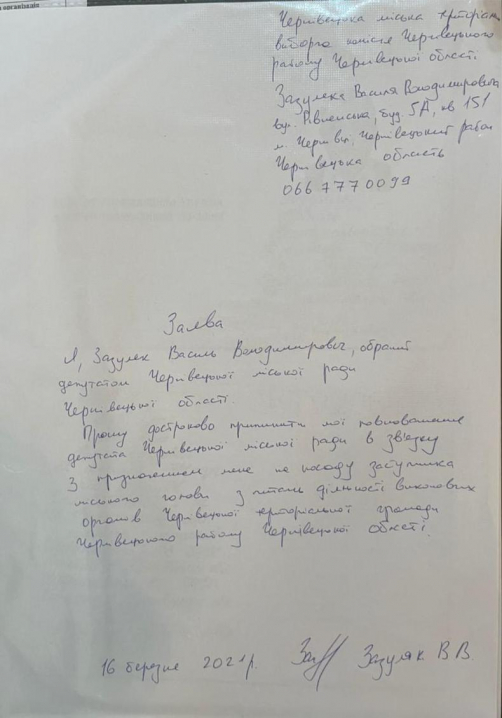 організація
Чернівецька міська територіал
виборча комісія Чернівецького
району Чернівецької області.
Зазуляка Василя Володимировича
вул. Рівненська, буд. 5А, кв 151
м. Чернівці, Чернівецький район
Чернівецька область
066 7770099
Заява
Я, Зазуляк Василь Володимирович, обраний
депутатом Чернівецької міської ради
Чернівецької області.
Прошу достроково припинити мої повноваження
депутата Чернівецької міської ради в зв'язку
з призначенням мене на посаду заступника
міського голови з питань діяльності виконавчих
органів Чернівецької територіальної громади
Чернівецького району Чернівецької області.
16 березня 2021р. Зазуляк В В.